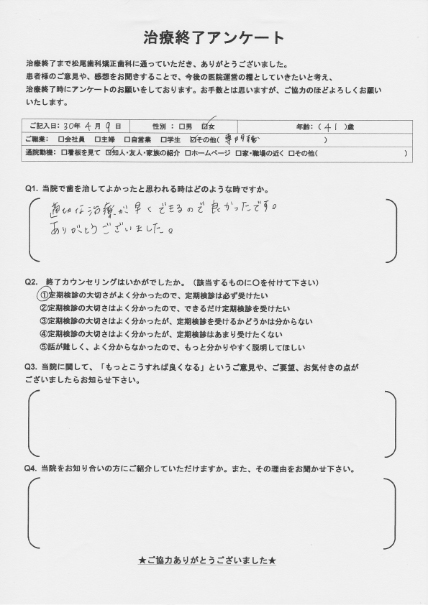 治療終了アンケート
治療終了まで松尾歯科矯正歯科に通っていただき、ありがとうございました。
患者様のご意見や、感想をお聞きすることで、今後の医院運営の糧としていきたいと考え、
治療終了時にアンケートのお願いをしております。お手数とは思いますが、ご協力のほどよろしくお願い
いたします。
ご記入日:30年 4月 9日 性別:□男 ☑女 年齢:(41)歳
ご職業: □会社員 □主婦 □自営業 □学生 ☑その他(専門職)
通院動機:□看板を見て ☑知人・友人・家族の紹介 □ホームページ □家・職場の近く □その他( )
Q1. 当院で歯を治してよかったと思われる時はどのような時ですか。
適切な治療が早くできるので良かったです。
ありがとうございました。
Q2. 終了カウンセリングはいかがでしたか。(該当するものに○を付けて下さい)
①定期検診の大切さがよく分かったので、定期検診は必ず受けたい
②定期検診の大切さはよく分かったので、できるだけ定期検診を受けたい
③定期検診の大切さはよく分かったが、定期検診を受けるかどうかは分からない
④定期検診の大切さはよく分かったが、定期検診はあまり受けたくない
⑤話が難しく、よく分からなかったので、もっと分かりやすく説明してほしい
Q3. 当院に関して、「もっとこうすれば良くなる」というご意見や、ご要望、お気付きの点が
ございましたらお知らせ下さい。
Q4. 当院をお知り合いの方にご紹介していただけますか。また、その理由をお聞かせ下さい。
★ご協力ありがとうございました★